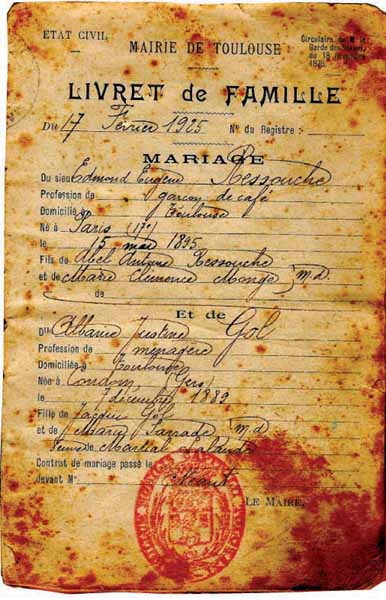 ETAT CIVIL
Circulaire de M. le
Garde des Sceaux,
du 18
1876.
MAIRIE DE TOULOUSE
LIVRET de FAMILLE
Du 17 Février 1925 N° du Registre :
MARIAGE
Du sieur Edmond Eugène Ressouche
Profession de garçon de café
Domicilié à Toulouse
Né à Paris (17e)
le 15 mai 1895
Fils de Abel Antoine Ressouche
et de Marie Clémence Monge m.d
de
Et de
Dlle Albanie Justine Gol
Profession de ménagère
Domiciliée à Toulouse
Née à Condom (Gers)
le 7 décembre 1889
Fille de Jacques Gol
et de Marie Sarrade m.d
Veuve de Martial Lalande
Contrat de mariage passé le
devant M° Néant
LE MAIRE,